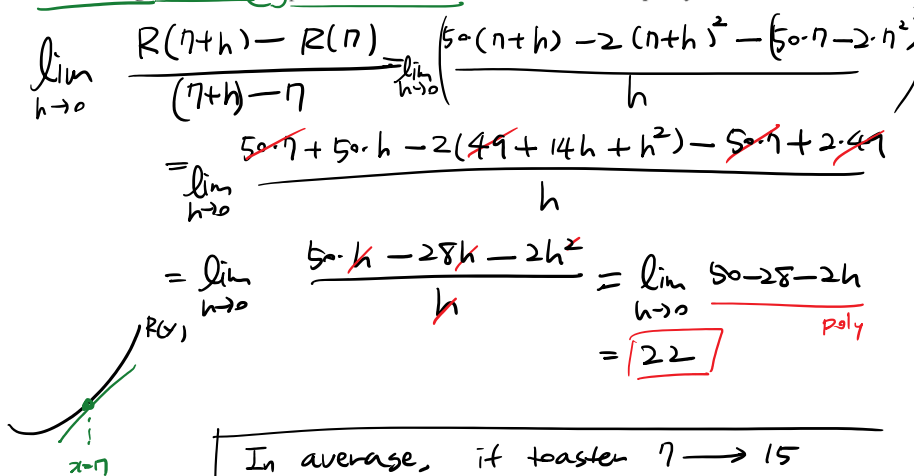 lim h→0 (R(7+h) − R(7)) / ((7+h) − 7) = lim h→0 (50(7+h) − 2(7+h)² − (50·7 − 2·7²)) / h
= lim h→0 (50·7 + 50·h − 2(49 + 14h + h²) − 50·7 + 2·49) / h
= lim h→0 (50·h − 28h − 2h²) / h = lim h→0 50−28−2h
poly
= 22
R(x)
x=7
In average, if toaster 7 → 15